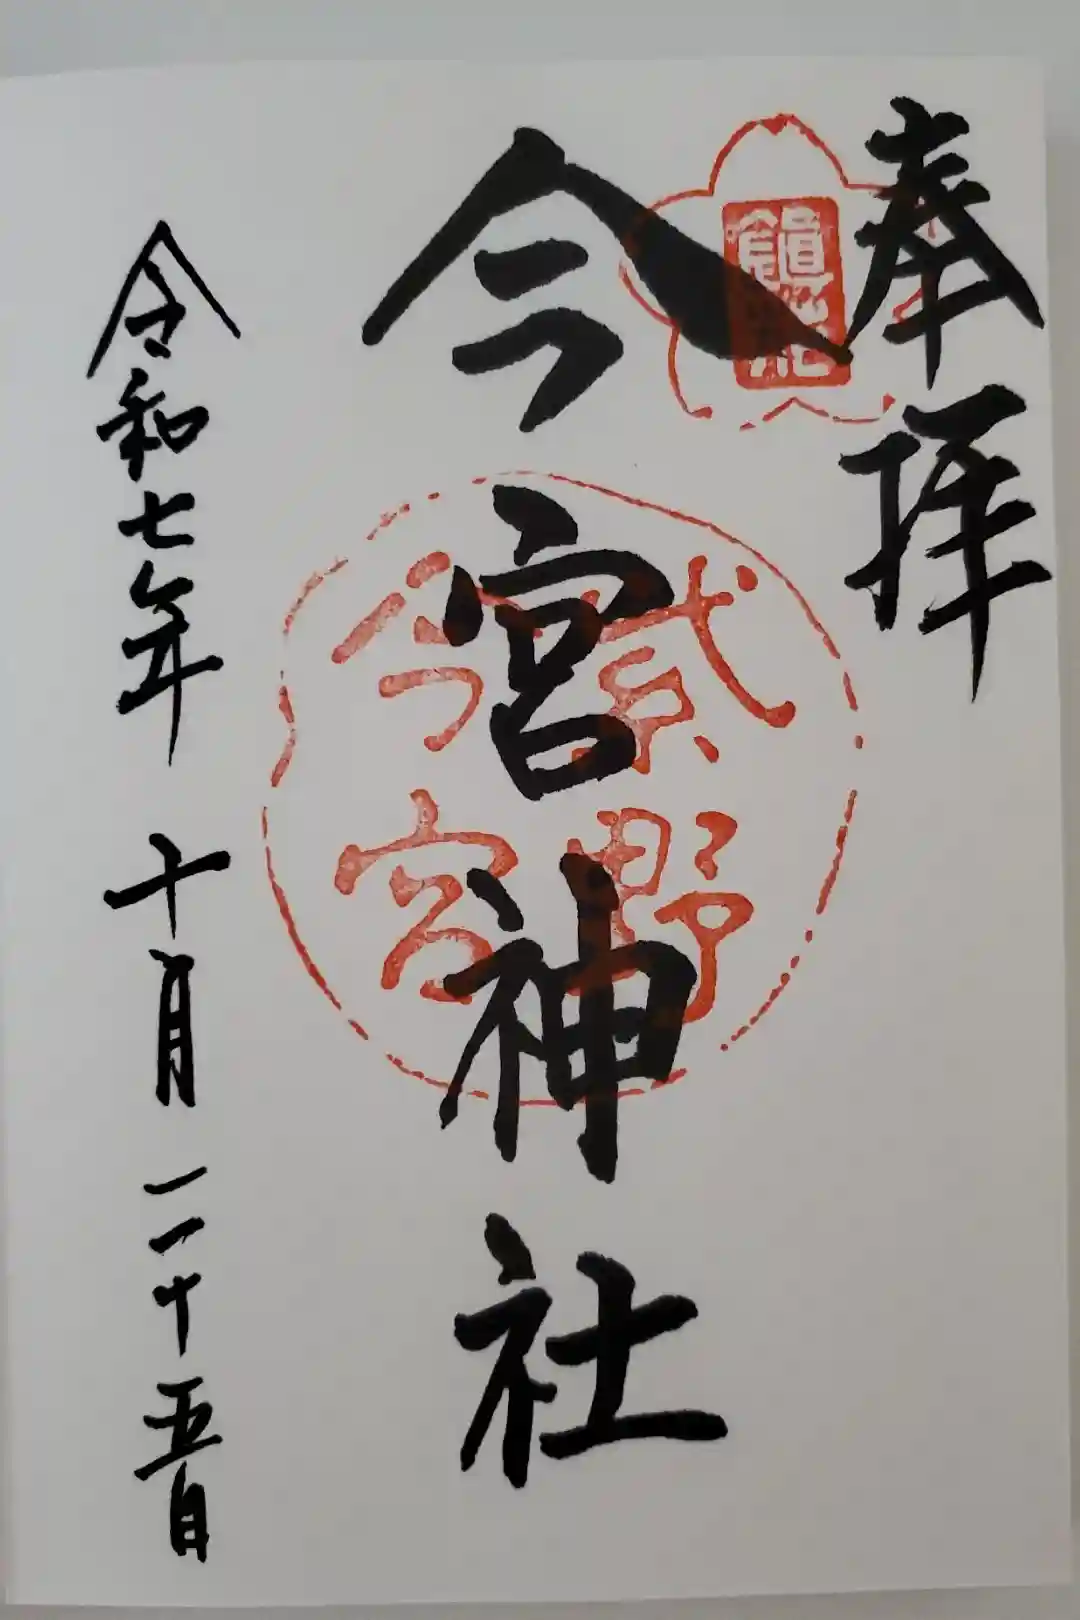 奉拝
今宮神社
紫野
今宮
令和七年十月二十五日